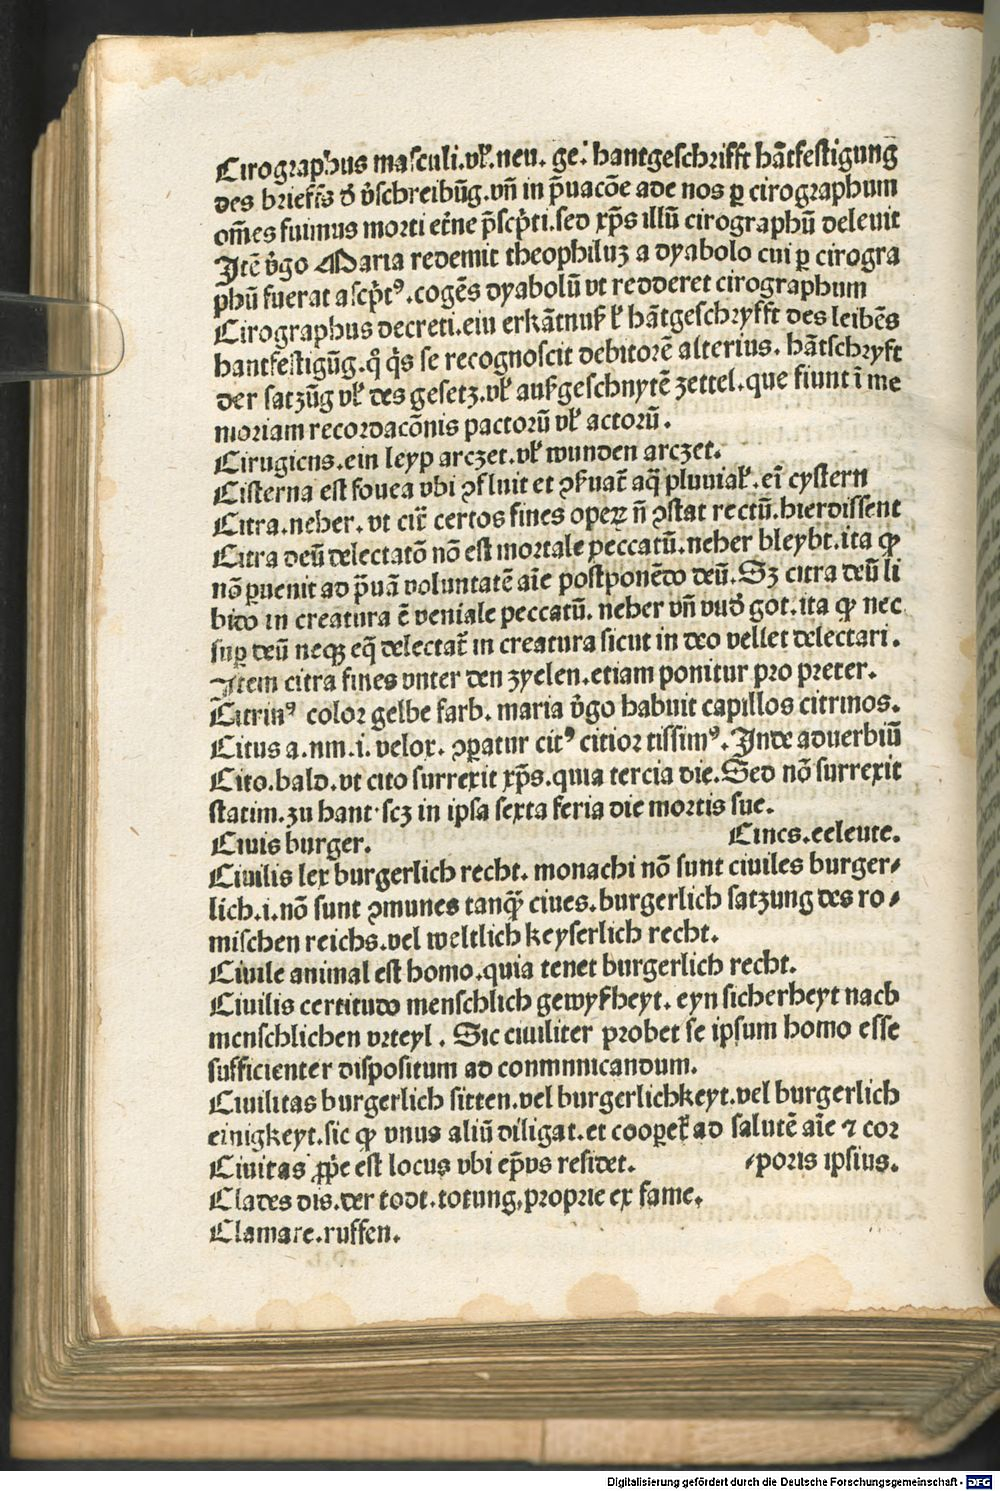 Cirographus masculi.vl̕.neu. ge. hantgeschrifft hātfestigung
des brieffs d̕ v̕schreibūg.vn̄ in p̄uacōe ade nos ꝑ cirographum
om̄es fuimus morti et̕ne p̄scp̕ti.sed xp̄s illū cirographū deleuit
Itē v̕go Maria redemit theophiluʒ a dyabolo cui ꝑ cirogra
phū fuerat ascp̕tꝰ.cogēs dyabolū vt redderet cirographum
Cirographus decreti.ein erkātnuß l̕ hātgeschryfft des leibēs
hantfestigūg.q̕ q̕s se recognoscit debitorē alterius. hātschryft
der satzūg vl̕ des gesetz.vl̕ außgeschnytē zettel.que fiunt ī me
moriam recordacōnis pactorū vl̕ actorū.
Cirugicus.ein leyp arczet.vl̕ wunden arczet.
Cisterna est fouea vbi ꝯfluit et ꝯẜuat̄ aq̄ pluuial̕.ei͞ cystern
Citra.neher. vt cit̄ certos fines opeꝝ n̄ ꝯstat rectū.hierdissent
Citra deū delectatō nō est mortale peccatū.neher bleybt.ita ꝙ
nō ꝑuenit ad p̄uā voluntatē aīe postponēdo deū.Sʒ citra deū li
bido in creatura ē veniale peccatū. neher vn̄ vnd̕ got.ita ꝙ nec
suꝑ deū neqꝫ eq̄ delectat̄ in creatura sicut in deo vellet delectari.
Item citra fines vnter den zyelen.etiam ponitur pro preter.
Citrinꝰ color gelbe farb. maria v̕go habuit capillos citrinos.
Citus a.nm.i.velox. ꝯꝑatur citꝰ citior tissimꝰ.Inde aduerbiū
Cito.bald.vt cito surrexit xp̄s.quia tercia die.Sed nō surrexit
statim.zu hant·scʒ in ipsa sexta feria die mortis sue.
Ciuis burger. Ciues.eeleute.
Ciuilis lex burgerlich recht. monachi nō sunt ciuiles burger⸗
lich.i.nō sunt ꝯmunes tanqꝫ̄ ciues.burgerlich satzung des ro⸗
mischen reichs.vel weltlich keyserlich recht.
Ciuile animal est homo.quia tenet burgerlich recht.
Ciuilis certitudo menschlich gewyßheyt. eyn sicherheyt nach
menschlichen vrteyl. Sic ciuiliter probet se ipsum homo esse
sufficienter dispositum ad conmnnicandum.
Ciuilitas burgerlich sitten.vel burgerlichkeyt.vel burgerlich
einigkeyt.sic ꝙ vnus aliū diligat.et cooꝑet̄ ad salutē aīe ⁊ cor
Ciuitas ꝓp̄e est locus vbi ep̄us residet. ⸗poris ipsius.
Clades dis.der todt.totung.proprie ex fame.
Clamare.ruffen.
Digitalisierung gefördert durch die Deutsche Forschungsgemeinschaft - DFG